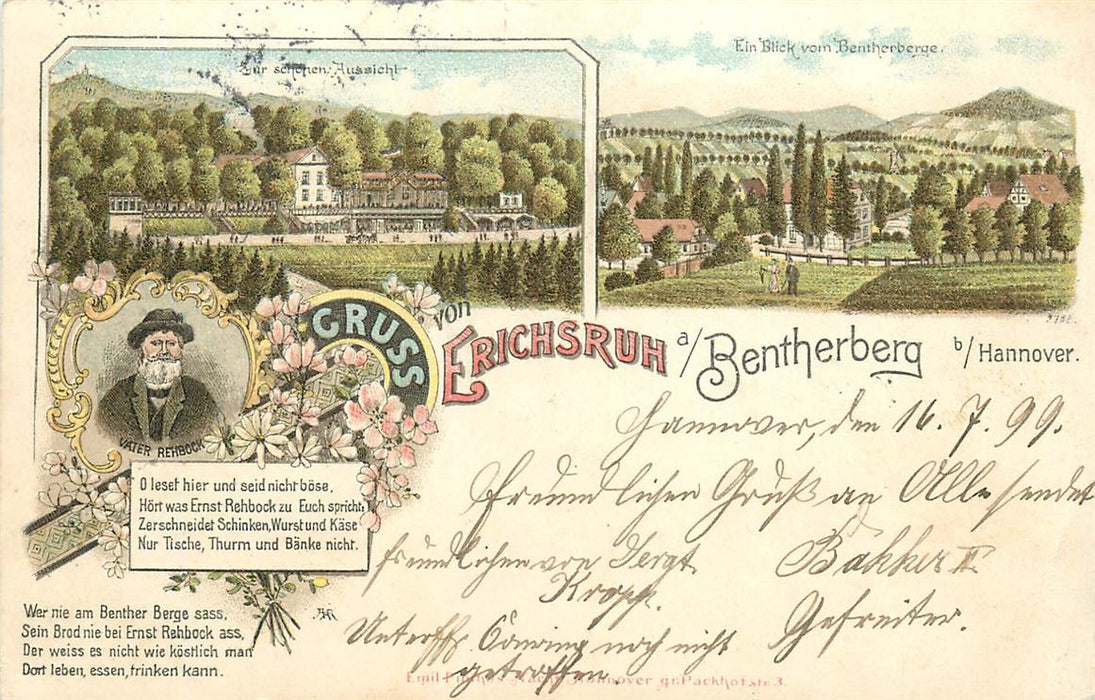 Zur schönen Aussicht
Ein Blick vom Bentherberge.
3752.
GRUSS von ERICHSRUH a/Bentherberg b/Hannover.
VATER REHBOCK
O leset hier und seid nicht böse,
Hört was Ernst Rehbock zu Euch spricht,
Zerschneidet Schinken, Wurst und Käse
Nur Tische, Thurm und Bänke nicht.
Wer nie am Benther Berge sass,
Sein Brod nie bei Ernst Rehbock ass,
Der weiss es nicht wie köstlich man
Dort leben, essen, trinken kann.
Hannover, den 16. 7. 99.
Freundlichen Gruß an Alle sendet
Bakker II
Gefreiter.
freundlichen von Sergt.
Kropp.
Unteroff. noch nicht
getroffen.
Emil Hannover gr. Packhofstr. 3.